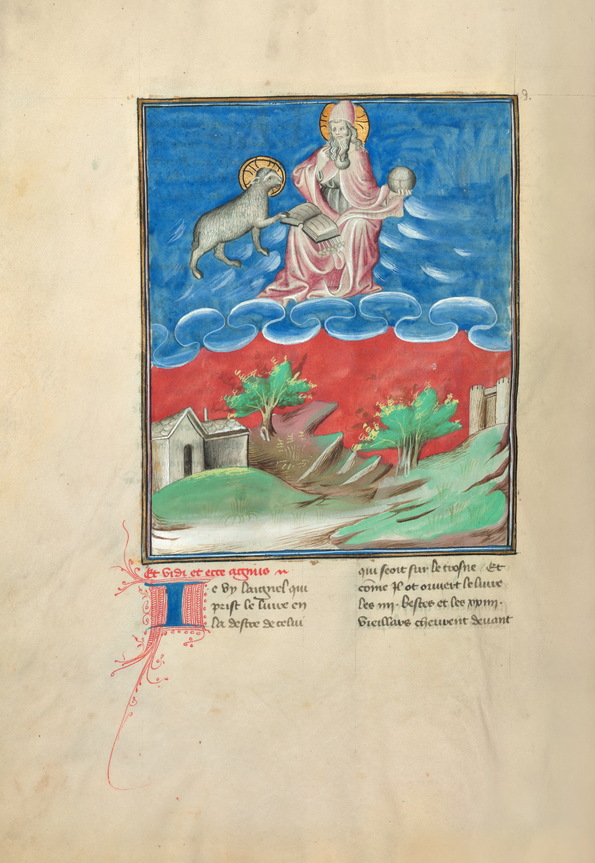 9.
Et vidi et ecce agnus
Ie vy laignel qui
prist le livre en
la destre de celui
qui seoit sur le trosne / Et
come Il ot ouvert le livre
les iiij. bestes et les xxiiij.
vieillars cheurent devant